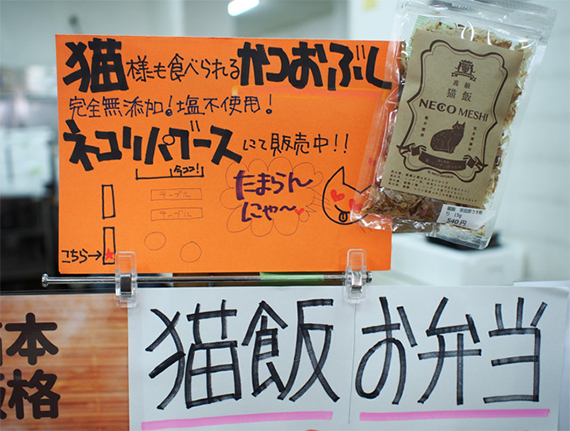 猫様も食べられるかつおぶし
完全無添加!塩不使用!
ネコリパブースにて販売中!!
今ココ!
テーブル
テーブル
こちら→
たまらん
にゃ〜
高級
猫飯
NECO MESHI
540円
本
格
猫飯
お弁当